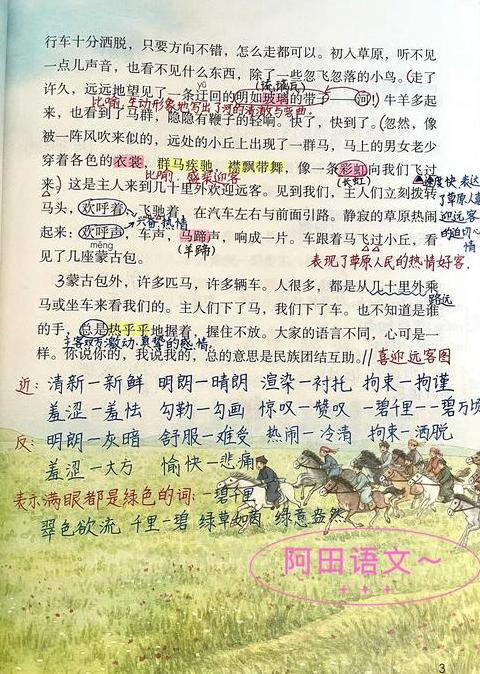 行车十分洒脱，只要方向不错，怎么走都可以。初入草原，听不见
一点儿声音，也看不见什么东西，除了一些忽飞忽落的小鸟。(走了
许久，远远地望见了一条迂回的明如玻璃的带子——河！)牛羊多起
yū
(读:璃页)
比喻，生动形象地写出了河的清澈与弯曲。
来，也看到了马群，隐隐有鞭子的轻响。快了，快到了。(忽然，像
被一阵风吹来似的，远处的小丘上出现了一群马，马上的男女老少
穿着各色的衣裳，群马疾驰，襟飘带舞，像一条彩虹向我们飞过
比喻，盛装迎客
(长虹)
来。)这是主人来到几十里外欢迎远客。见到我们，主人们立刻拨转
速度快，表达
马头，欢呼着，飞驰着，在汽车左右与前面引路。静寂的草原热闹
兴奋、热情
迎远客
起来：欢呼声，车声，马蹄声，响成一片。车跟着马飞过小丘，看
的迫切心
情
(羊蹄)
见了几座蒙古包。
měng
表现了草原人民的热情好客。
3蒙古包外，许多匹马，许多辆车。人很多，都是从几十里外乘
路远
马或坐车来看我们的。主人们下了马，我们下了车。也不知道是谁
的手，总是热乎乎地握着，握住不放。大家的语言不同，心可是一
主客双方激动、真挚的感情，
样。你说你的，我说我的，总的意思是民族团结互助。//喜迎远客图
近：清新—新鲜 明朗—晴朗 渲染—衬托 拘束—拘谨
羞涩—羞怯 勾勒—勾画 惊叹—赞叹 一碧千里--一碧万顷
反：明朗—灰暗 舒服—难受 热闹—冷清 拘束—洒脱
羞涩—大方 愉快—悲痛
表示满眼都是绿色的词：一碧千里
翠色欲流 千里一碧 绿草如茵 绿意盎然
阿田语文～
3